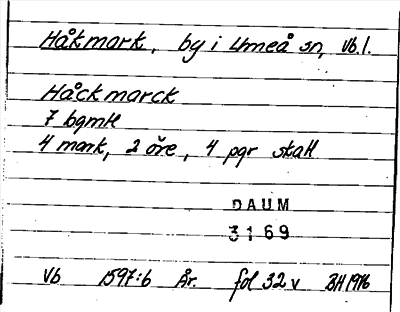 Håkmark, by i Umeå sn, Vb.l.
Håckmarck
7 bgml
4 mark, 2 öre, 4 pgr skatt
DAUM
3169
Vb 1597:6 År. fol 32 v BH 1976